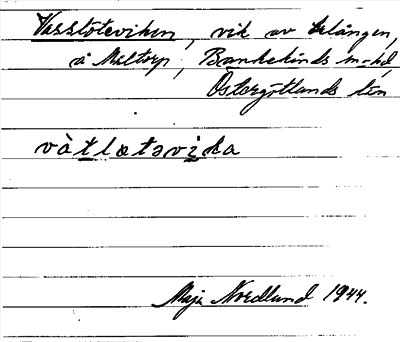 Vasstoteviken, vik av
å Meltorp, Bankekinds
Östergötlands län
vàtlotəvika
Maja Nordlund 1944.